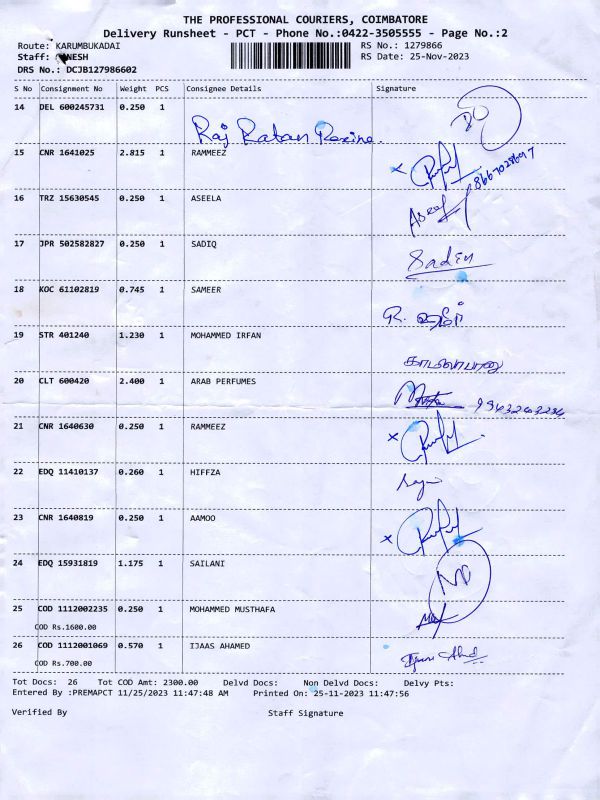 THE PROFESSIONAL COURIERS, COIMBATORE
Delivery Runsheet - PCT - Phone No.:0422-3505555 - Page No.:2
Route: KARUMBUKADAI RS No.: 1279866
Staff: NESH RS Date: 25-Nov-2023
DRS No.: DCJB127986602
S No Consignment No Weight PCS Consignee Details Signature
14 DEL 600245731 0.250 1
Raj Ratan Rexine
15 CNR 1641025 2.815 1 RAMMEEZ
8667028697
16 TRZ 15630545 0.250 1 ASEELA
Aseel
17 JPR 502582827 0.250 1 SADIQ
Sadiq
18 KOC 61102819 0.745 1 SAMEER
19 STR 401240 1.230 1 MOHAMMED IRFAN
20 CLT 600420 2.400 1 ARAB PERFUMES
21 CNR 1640630 0.250 1 RAMMEEZ
22 EDQ 11410137 0.260 1 HIFFZA
23 CNR 1640819 0.250 1 AAMOO
24 EDQ 15931819 1.175 1 SAILANI
25 COD 1112002235 0.250 1 MOHAMMED MUSTHAFA
COD Rs.1600.00
26 COD 1112001069 0.570 1 IJAAS AHAMED
COD Rs.700.00
Tot Docs: 26 Tot COD Amt: 2300.00 Delvd Docs: Non Delvd Docs: Delvy Pts:
Entered By :PREMAPCT 11/25/2023 11:47:48 AM Printed On: 25-11-2023 11:47:56
Verified By Staff Signature